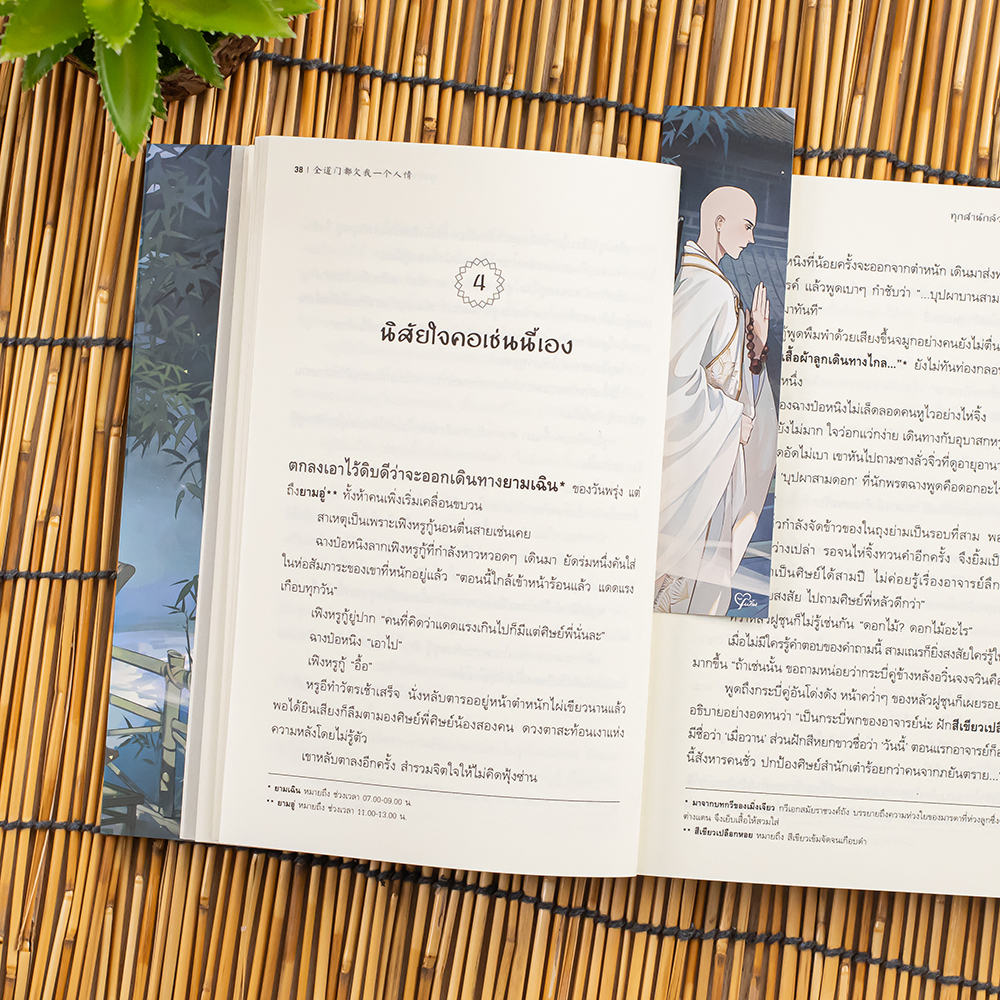 38 | 全道门都欠我一个人情
4
นิสัยใจคอเช่นนี้เอง
ตกลงเอาไว้ดิบดีว่าจะออกเดินทางยามเฉิน* ของวันพรุ่ง แต่
ถึงยามอู่** ทั้งห้าคนเพิ่งเริ่มเคลื่อนขบวน
สาเหตุเป็นเพราะเพิงหรูกู้นอนตื่นสายเช่นเคย
ฉางป๋อหนิงลากเพิงหรูกู้ที่กำลังหาวหวอดๆ เดินมา ยัดร่มหนึ่งคันใส่
ในห่อสัมภาระของเขาที่หนักอยู่แล้ว “ตอนนี้ใกล้เข้าหน้าร้อนแล้ว แดดแรง
เกือบทุกวัน”
เพิงหรูกู้ยู่ปาก “คนที่คิดว่าแดดแรงเกินไปก็มีแต่ศิษย์พี่นั่นละ”
ฉางป๋อหนิง “เอาไป”
เพิงหรูกู้ “อื้อ”
หรูอีทำวัตรเช้าเสร็จ นั่งหลับตารออยู่หน้าตำหนักไผ่เขียวนานแล้ว
พอได้ยินเสียงก็ลืมตามองศิษย์พี่ศิษย์น้องสองคน ดวงตาสะท้อนเงาแห่ง
ความหลังโดยไม่รู้ตัว
เขาหลับตาลงอีกครั้ง สำรวมจิตใจให้ไม่คิดฟุ้งซ่าน
* ยามเฉิน หมายถึง ช่วงเวลา 07.00-09.00 น.
** ยามอู่ หมายถึง ช่วงเวลา 11.00-13.00 น.
ทุกสำนักล้ว
หนิงที่น้อยครั้งจะออกจากตำหนัก เดินมาส่งพ
รค์ แล้วพูดเบาๆ กำชับว่า “...บุปผาบานสาม
มาทันที”
ู้พูดพึมพำด้วยเสียงขึ้นจมูกอย่างคนยังไม่ตื่น
เสื้อผ้าลูกเดินทางไกล...”* ยังไม่ทันท่องกลอน
หนึ่ง
องฉางป๋อหนิงไม่เล็ดลอดคนหูไวอย่างไห่จิ้ง
ยังไม่มาก ใจว่อกแว่กง่าย เดินทางกับอุบาสกหรู
ดอัดไม่เบา เขาหันไปถามซางลั่วจิ่วที่ดูอายุอานา
‘บุปผาสามดอก’ ที่นักพรตฉางพูดคือดอกอะไร
วกำลังจัดข้าวของในถุงย่ามเป็นรอบที่สาม พอ
ว่างเปล่า รอจนไห่จิ้งทวนคำอีกครั้ง จึงยิ้มเป็
าเป็นศิษย์ได้สามปี ไม่ค่อยรู้เรื่องอาจารย์ลึก
สงสัย ไปถามศิษย์พี่หลัวดีกว่า”
ทว่าหลัวฝูชุนก็ไม่รู้เช่นกัน “ดอกไม้? ดอกไม้อะไร”
เมื่อไม่มีใครรู้คำตอบของคำถามนี้ สามเณรก็ยิ่งสงสัยใคร่รู้ใ
มากขึ้น “ถ้าเช่นนั้น ขอถามหน่อยว่ากระบี่คู่ข้างหลังอวิ๋นจงจวินคือ
พูดถึงกระบี่คู่อันโด่งดัง หน้าคว่ำๆ ของหลัวฝูชุนก็เผยรอย
อธิบายอย่างอดทนว่า “เป็นกระบี่พกของอาจารย์น่ะ ฝักสีเขียวเปลื
มีชื่อว่า ‘เมื่อวาน’ ส่วนฝักสีหยกขาวชื่อว่า ‘วันนี้’ ตอนแรกอาจารย์ก็อ
นี้สังหารคนชั่ว ปกป้องศิษย์สำนักเต๋าร้อยกว่าคนจากภยันตราย...”
* มาจากบทกวีของเมิ่งเจียว กวีเอกสมัยราชวงศ์ถัง บรรยายถึงความห่วงใยของมารดาที่ห่วงลูกซึ่ง
ต่างแดน จึงเย็บเสื้อให้สวมใส่
** สีเขียวเปลือกหอย หมายถึง สีเขียวเข้มจัดจนเกือบดำ